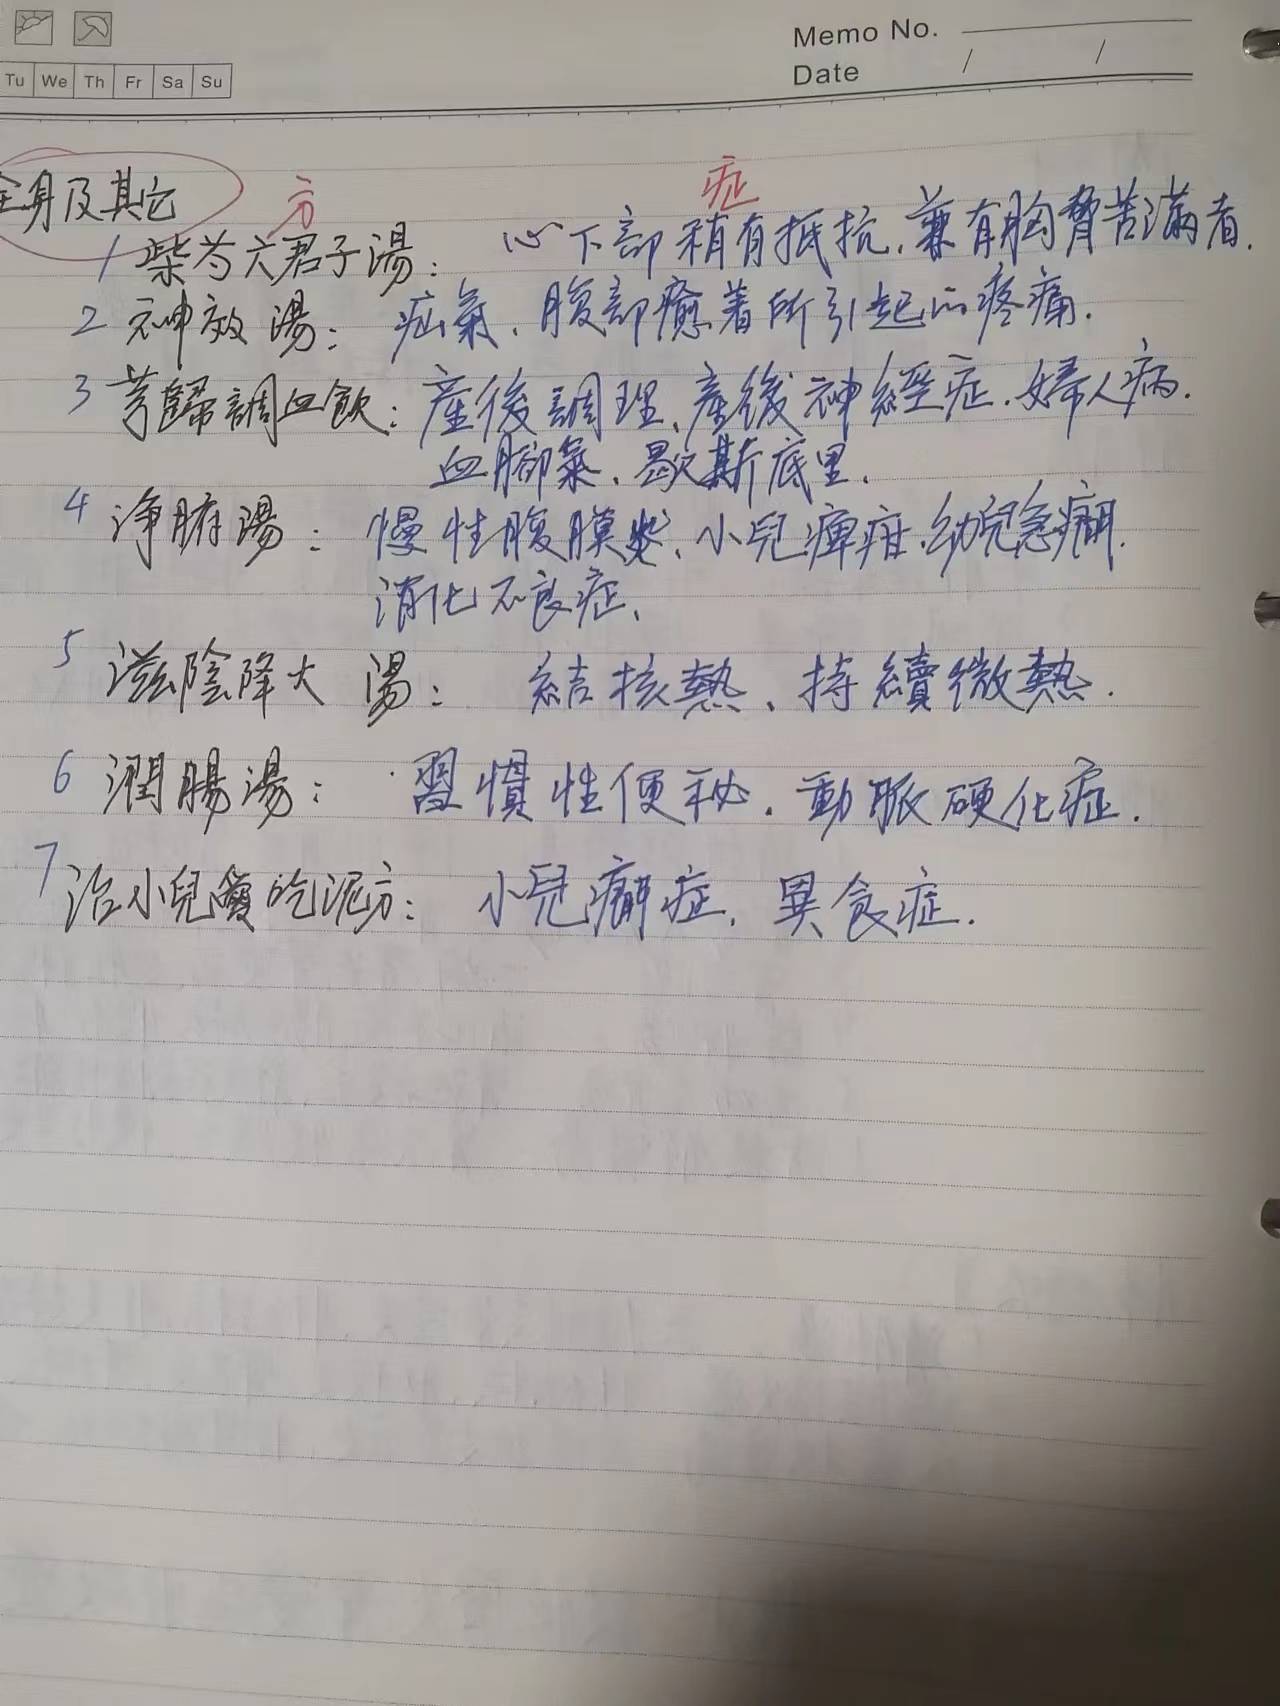 Memo No.
Date / /
Tu We Th Fr Sa Su
全身及其它 方 症
1 柴芍六君子湯: 心下部稍有抵抗、兼有胸脅苦滿者.
2 神效湯: 疝氣、腹部癒着所引起的疼痛.
3 芎歸調血飲: 産後調理、産後神經症、婦人病.
血腳氣、歇斯底里.
4 淨腑湯: 慢性腹膜炎、小兒痺疳、幼兒急癇.
消化不良症、
5 滋陰降火湯: 結核熱、持續微熱.
6 潤腸湯: 習慣性便秘、動脈硬化症.
7 治小兒愛吃泥方: 小兒癇症、異食症.